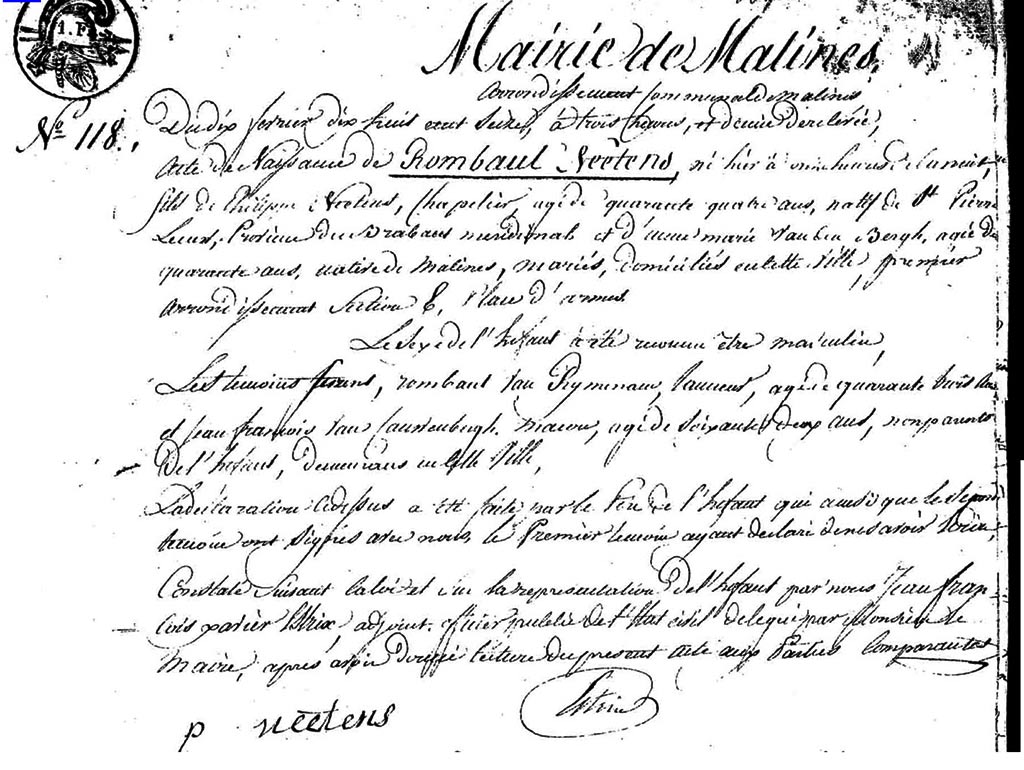 1. F.
Mairie de Malines.
Arrondissement Communal de Malines
No 118.
Du dix fevrier dix huit cent Seize, à trois heures, et demie de relevée,
Acte de Naissance de Rombaul Neetens, né hier à onze heures de la nuit,
fils de Philippe Neetens, Chapelier, agé de quarante quatre ans, natif de St Pierre
Leeuw, Province du Brabant meridional et d'anne marie Van den Bergh, agée de
quarante ans, native de Malines, mariés, domiciliés en cette Ville, premier
arrondissement Section E, Place d'armes
Le Sexe de l'Enfant a été reconnu être masculin,
Les temoins furent, rombaut Van Rymenam, tanneur, agé de quarante trois ans
et Jean francois Van Cauwenbergh. macon, agé de Soixante deux ans, non parents
De l'Enfant, demeurans en cette Ville,
La declaration Cidessus a été faite par le Pere de l'Enfant qui ainsi que le Second
temoin ont Signés avec nous, le Premier temoin ayant declaré de ne savoir ecrire,
Constaté Suivant la loi et sur la representation De l'Enfant par nous Jean fran-
cois xavier adjoint. officier public de l'Etat civil delegué par Monsieur le
Maire, après avoir donné lecture du present acte aux Parties Comparantes
p neetens